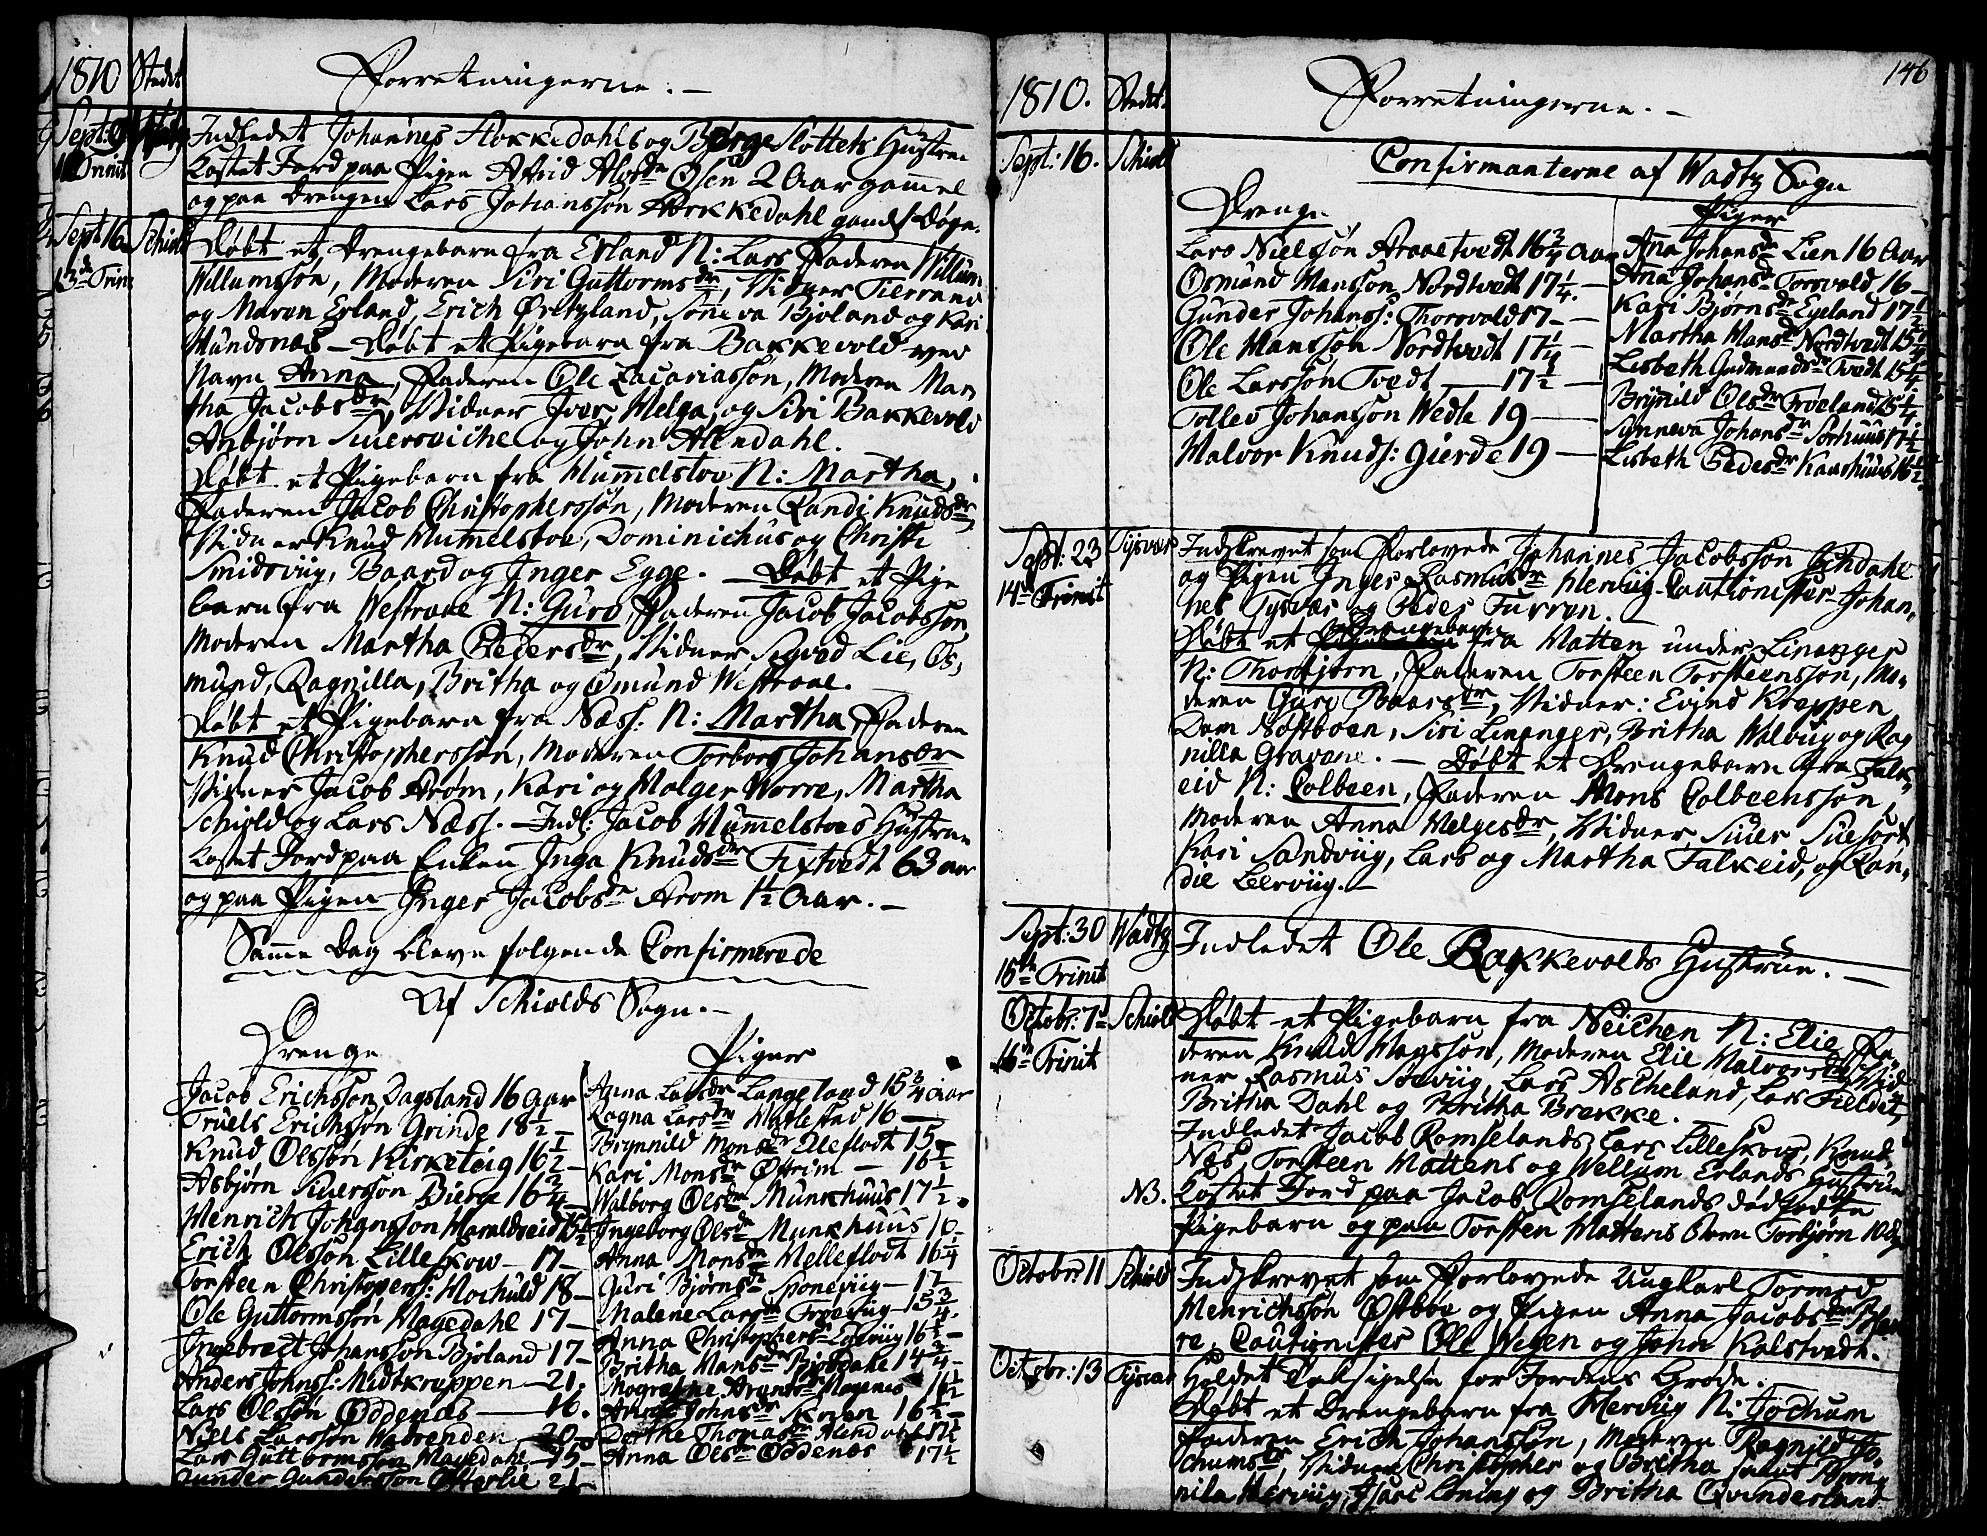 1810 Stedet Forretningerne. —
Sept: 9
Indledet Johannes Stokkedahls og Børge Slottets Hustrue
Trinit
Kastet Jord paa Pigen Astrid Alvsdr Osen 2 Aar gammel
og paa Drengen Lars Johansson Stokkedahl Døgn.
Sept: 16 Schiold Døbt et Drengebarn fra Erland N: Lars, Faderen Willum
13de Trin: Willumssøn, Moderen Siri Guttormsdr, Vidner
og Maren Erland, Erich Øvrland, Bioland og Kari
Hundsnæs — Døbt et Pigebarn fra Bakkevold ved
Navn Anna, Faderen Ole Zacariassøn, Moderen Mar
tha Jacobsdr, Vidner Iver, Helga, og Siri Bakkevold
Anbjørn og John Alendahl.
Døbt et Pigebarn fra Hummelstov N: Martha,
Faderen Jacob Christopherssøn, Moderen Randi Knudsdr
Vidner Knud Hummelstoe, Dominichus og Christi
Smidsviig, Baard og Inger Egge. — Døbt et Pige
barn fra Westraae N: Guro, Faderen Jacob Jacobssøn
Moderen Martha Pedersdr, Vidner Sigved Lie, Os,
mund, Ragnilla, Britha og Omund Westraae.
Døbt et Pigebarn fra Næss. N: Martha, Faderen
Knud Christopherssøn, Moderen Torborg Johansdr
Vidner Jacob Arøm, Kari og Holger Worre, Martha
Schiold og Lars Næss. — Indl: Jacob Hummelstoes Hustrue
Kastet Jord paa Enken Inga Knudsdr Tixtvedt 63 aar
og paa Pigen Inger Jacobsdr Arom ½ Aar. —
Samme Dag bleve følgende Confirmerede
Af Schiolds Sogn. —
Drenge
Jacob Erichssøn Dagsland 16 Aar
Truels Erichssøn Grinde 18½ —
Knud Olssøn Kirketeig 16½ —
Asbjørn Siverssøn Bierge 16¾
Henrich Johanssøn Haraldseid
Erich Olssøn Lilleskow — 17 —
Torsteen Christopers: Hochuld 18 —
Ole Guttormssøn Hagedahl 17 —
Ingebrect Johanssøn Bjoland 17 —
Anders Johnss: Midtkrappen — 21.
Lars Olssøn Oddenæs — 16.
Niels Larssøn — 20 —
Lars Guttormssøn Hagedahl — 15 —
Gunder Gunderssøn Østerlie 21 —
Pigner
Anna Larsdr Langeland 15¾ aar
Ragna Larsdr Hatlestad 16 —
Brynnild Monsdr Elleflodt 15 —
Kari Monsdr Østrim — 16½
Walborg Olsdr Munkhuus 17½
Ingeborg Olsdr Munkhuus 16.
Anna Monsdr Helleflodt 16¼
Guri Bjørnsdr Soneviig — 17 —
Malene Larsdr Trøeviig — 15¾
Anna Christophersdr 16½ —
Britha Hansdr Biordahl 14¾ —
16½
Johnsdr Skoven 16½ —
Dorthe Thomasdr Alendahl 17½
Anna Olsdr Oddenæs 17½
146
1810. Stedet. Forretningerne. —
Sept: 16. Schiold Confirmanterne af Wadtz Sogn
Drenge
Lars Nielssøn Araaetvedt 16¾ Aar
Osmund Hanssøn Nordtvedt 17¼ —
Gunder Johanss: Thorsvold 17 —
Ole Hanssøn Nordtvedt 17¼ —
Ole Larssøn Tvedt — 17½ —
Tollev Johanssøn Wedle 19 —
Halvor Knuds: Gierde 19 —
Piger
Ana Johansdr Lien 16 Aar
Ana Johansdr Torsvold 16 —
Kari Bjørnsdr Eyeland 17½
Martha Hansdr Nordtvedt 15¼
Lisbeth Gudmundsdr Tvedt 15¼
Brynild Olsdr Frøeland 15¼
Synneva Johansdr Sørhuus 17½
Lisbeth Pedersdr Kaarhuus 16½
Sept: 23 Tysvær Indskrevet som Forlovede Johannes Jacobssøn
14de Trinit og Pigen Inger Rasmusdr Herviig. Cautionister Johan,
nes Tysvær og Peder Furren.
Døbt et Drengebarn fra Hatten under Linanger
N: Thorbjørn, Faderen Torsteen Torsteenssøn, Mo,
deren Guro Baarsdr, Vidner: Eivind Krappen
Dom Nostboen, Siri Linanger, Britha Walviig og Rag
nilla Gravane. — Døbt et Drengebarn fra Falk,
eid N: Colbeen, Faderen Mons Colbeenssøn,
Moderen Anna Helgesdr, Vidner Siver
Kari Sandviig, Lars og Martha Falkeid, og Ran,
die Leerviig. —
Sept: 30 Wadtz Indledet Ole Bakkevolds Hustrue. —
15de Trinit
Octobr: 7de Schiold Døbt et Pigebarn fra Neichen N: Elie, Fa,
16de Trinit deren Knud Hagssøn, Moderen Elie Halvorsdr, Vid
ner Rasmus Soeviig, Lars Ascheland, Lars Fieldet,
Britha Dahl og Britha Brekke.
Indledet Jacob Romselands, Lars Lilleskovs, Knud
Næs, Torsteen Hattens og Wellum Erlands Hustruer
NB. Kastet Jord paa Jacob Romselands dødfødte
Pigebarn og paa Torsten Hattens Barn Torbjørn
Octobr: 11 Schiold Indskrevet som Forlovede Ungkarl Tormod
Henrichssøn Østbøe og Pigen Anna Jacobsdr
re, Cautionister Ole Wegen og John Kalstvedt.
Octobr: 13 Tysvær Holdet Taksigelse for Jordens Grøde. —
Døbt et Drengebarn fra Herviig N: Jochum
Faderen Erich Johanssøn, Moderen Ragnild Jo,
chumsdr, Vidner Christopher og Britha samt Bryn,
nila Herviig, Lars Loning og Britha Qvinderland